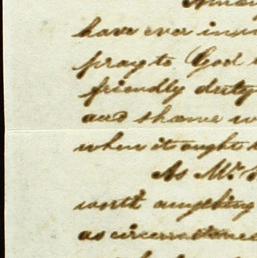 have ever
pray to God
friendly duty
and shame
when it ought
As Mr.
worth anything
as circumstance